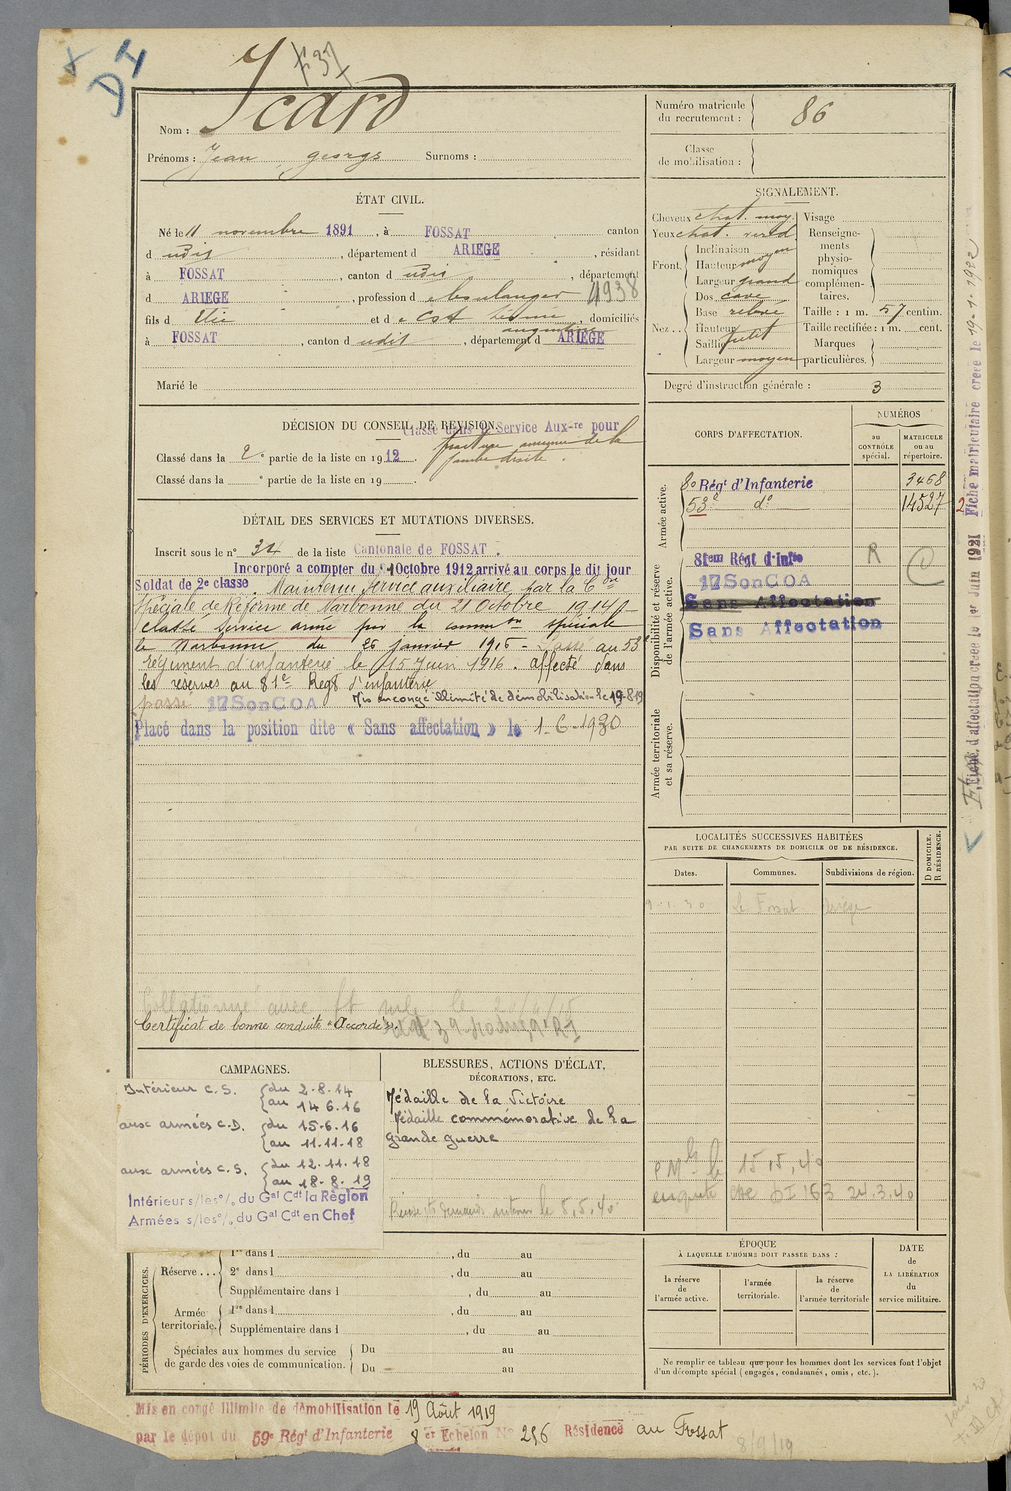 DI
F37
Nom : Icard
Prénoms : Jean georges Surnoms :
Numéro matricule du recrutement : 86
Classe de mobilisation :
ÉTAT CIVIL.
Né le 11 novembre 1891, à FOSSAT canton
d udis, département d ARIEGE, résidant
à FOSSAT, canton d udis, département
d ARIEGE, profession d boulanger
4938
fils d Elie et de domiciliés
à FOSSAT, canton d udit, département d ARIEGE
Marié le
SIGNALEMENT.
Cheveux chat. moy.
Yeux chat. verd
Front. Inclinaison moyen
Hauteur
Largeur grand
Nez .. Dos cave
Base relevé
Hauteur
Saillie petit
Largeur moyen
Visage
Renseignements physionomiques complémentaires.
Taille : 1 m. 57 centim.
Taille rectifiée : 1 m. cent.
Marques particulières.
Degré d'instruction générale : 3
DÉCISION DU CONSEIL DE REVISION.
Classé dans le Service Aux-re pour
fracture ancienne de la
jambe droite.
Classé dans la 2e partie de la liste en 1912.
Classé dans la e partie de la liste en 19
DÉTAIL DES SERVICES ET MUTATIONS DIVERSES.
Inscrit sous le n° 34 de la liste Cantonale de FOSSAT.
Incorporé a compter du 10 Octobre 1912 arrivé au corps le dit jour
Soldat de 2e classe. Maintenu Service auxiliaire par la Con
Spéciale de Réforme de Narbonne du 21 Octobre 1914
Classé Service armé par la commion spéciale
de Narbonne du 26 janvier 1915 - Passé au 53e
régiment d'infanterie le 15 Juin 1916. Affecté dans
les réserves au 81e Regt d'infanterie
Mis en congé illimité de démobilisation le 19-8-19
passé 17 Son COA
Placé dans la position dite « Sans affectation » le 1-6-1930
CORPS D'AFFECTATION.
NUMÉROS
au CONTRÔLE spécial.
MATRICULE ou au répertoire.
Armée active.
80 Régt d'Infanterie 3468
53e do 14527
Disponibilité et réserve de l'armée active.
81eme Régt d'Infie R C
17 Son COA
Sans Affectation
Sans Affectation
Armée territoriale et sa réserve.
LOCALITÉS SUCCESSIVES HABITÉES
PAR SUITE DE CHANGEMENTS DE DOMICILE OU DE RÉSIDENCE.
Dates. Communes. Subdivisions de région.
D DOMICILE. R RÉSIDENCE.
Le Fossat Ariège
Collationné avec
Certificat de bonne conduite "Accordé".
CAMPAGNES.
Intérieur C.S. du 2.8.14
au 14.6.16
aux armées C.D. du 15.6.16
au 11.11.18
aux armées C.S. du 12.11.18
au 18.8.19
Intérieur s/les o/o du Gal Cdt la Région
Armées s/les o/o du Gal Cdt en Chef
BLESSURES, ACTIONS D'ÉCLAT,
DÉCORATIONS, ETC.
Médaille de la Victoire
Médaille commémorative de la
grande guerre
le 15, 5, 40
enquête DI 163 24.3.40
PÉRIODES D'EXERCICES.
Réserve ... 1re dans l , du au
2e dans l , du au
Supplémentaire dans l , du au
Armée territoriale. 1re dans l , du au
Supplémentaire dans l , du au
Spéciales aux hommes du service de garde des voies de communication.
Du au
Du au
ÉPOQUE
À LAQUELLE L'HOMME DOIT PASSER DANS :
la réserve de l'armée active.
l'armée territoriale.
la réserve de l'armée territoriale
DATE
de
LA LIBÉRATION
du
service militaire.
Ne remplir ce tableau que pour les hommes dont les services font l'objet
d'un décompte spécial (engagés, condamnés, omis, etc.).
Mis en congé illimité de démobilisation le 19 Août 1919
par le dépot du 59e Régt d'Infanterie 8 er Echelon No 256 Résidence au Fossat
8/9/19
Fiche d'affectation créée le 1er Juin 1921 Fiche matriculaire créée le 19-1-1922